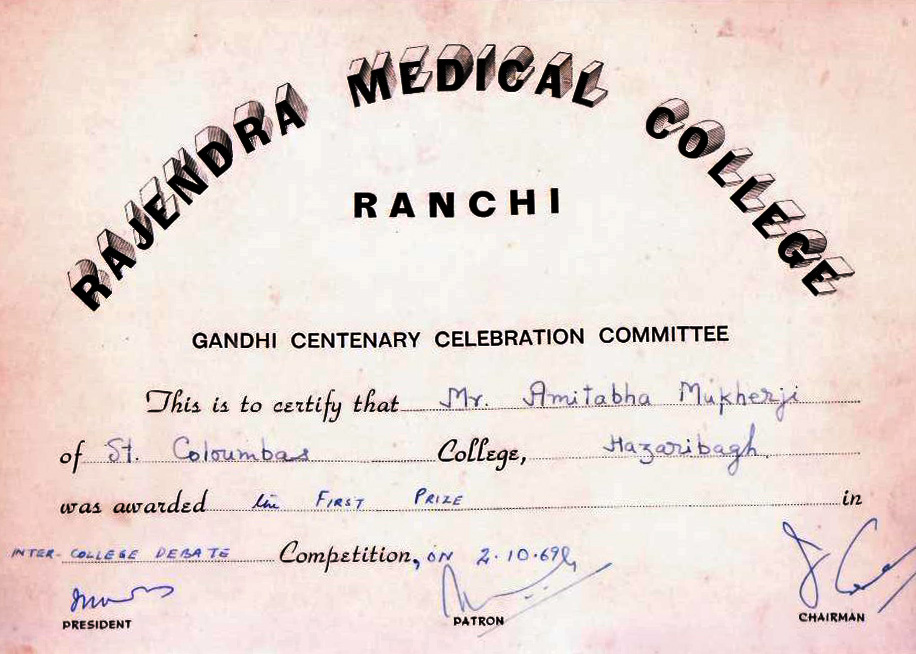 RAJENDRA MEDICAL COLLEGE
RANCHI
GANDHI CENTENARY CELEBRATION COMMITTEE
This is to certify that Mr. Amitabha Mukherji
of St. Coloumbas College, Hazaribagh.
was awarded the FIRST PRIZE in
INTER-COLLEGE DEBATE Competition, ON 2.10.69
PRESIDENT PATRON CHAIRMAN